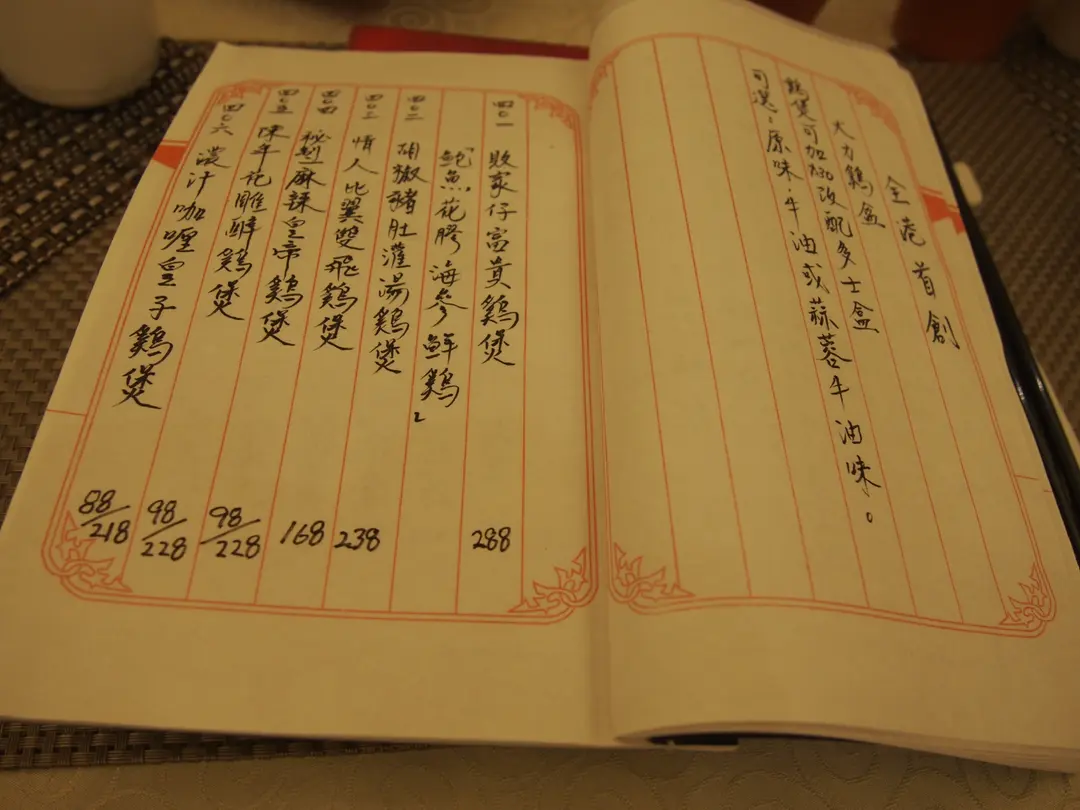 全港首創
大力鷄盒
鷄煲可加$30改配多士盒
可選：原味、牛油或蒜蓉牛油味。
四〇一 敗家仔富貴鷄煲 288
「鮑魚花膠海參鮮鷄」
四〇二 胡椒豬肚灌湯鷄煲 238
四〇三 情人比翼雙飛鷄煲 168
四〇四 秘製麻辣皇帝鷄煲 98/228
四〇五 陳年花雕醉鷄煲 98/228
四〇六 濃汁咖喱皇子鷄煲 88/218